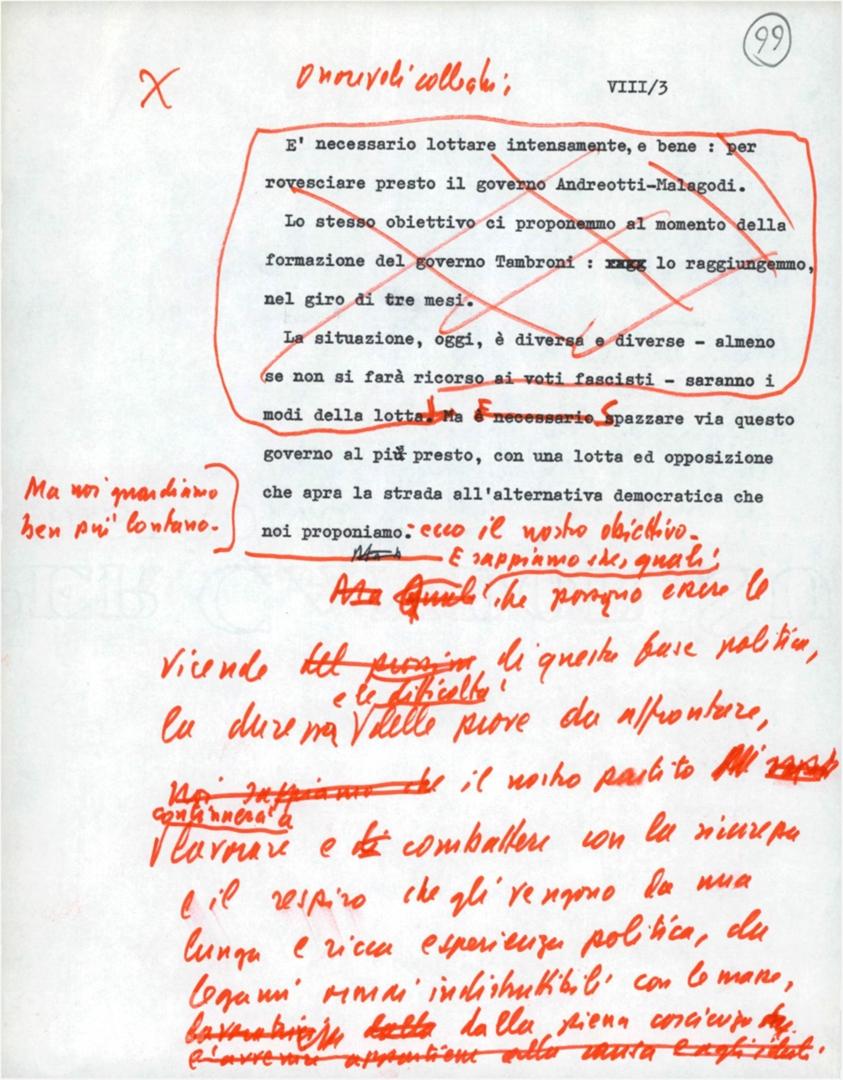 99
X Onorevoli colleghi;
VIII/3
E' necessario lottare intensamente, e bene : per
rovesciare presto il governo Andreotti-Malagodi.
Lo stesso obiettivo ci proponemmo al momento della
formazione del governo Tambroni : xxxx lo raggiungemmo,
nel giro di tre mesi.
La situazione, oggi, è diversa e diverse - almeno
se non si farà ricorso ai voti fascisti - saranno i
modi della lotta. Ma è necessario spazzare via questo
governo al più presto, con una lotta ed opposizione
che apra la strada all'alternativa democratica che
Ma noi guardiamo
ben più lontano.
noi proponiamo: ecco il nostro obiettivo.
Ma E sappiamo che, quali
Ma Quali che possano essere le
vicende del prossimo di questa fase politica,
e le difficoltà
la durezza delle prove da affrontare,
Noi sappiamo che il nostro partito
continuerà a
lavorare e di combattere con la sicurezza
e il respiro che gli vengono da una
lunga e ricca esperienza politica, da
legami ormai indistruttibili con le masse,
lavoratrici dalla dalla piena coscienza che
l'avvenire appartiene alla causa e agli ideali